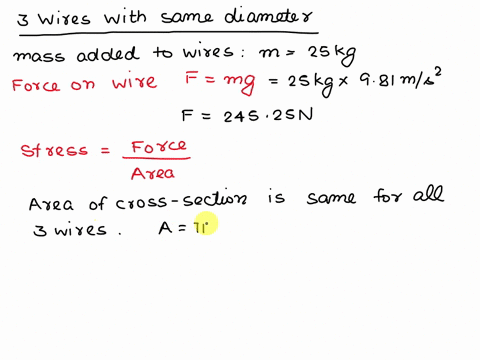 3 wires with same diameter
mass added to wires: m = 25 kg
Force on wire F = mg = 25 kg × 9.81 m/s²
F = 245.25 N
Stress = Force / Area
Area of cross-section is same for all
3 wires. A = π